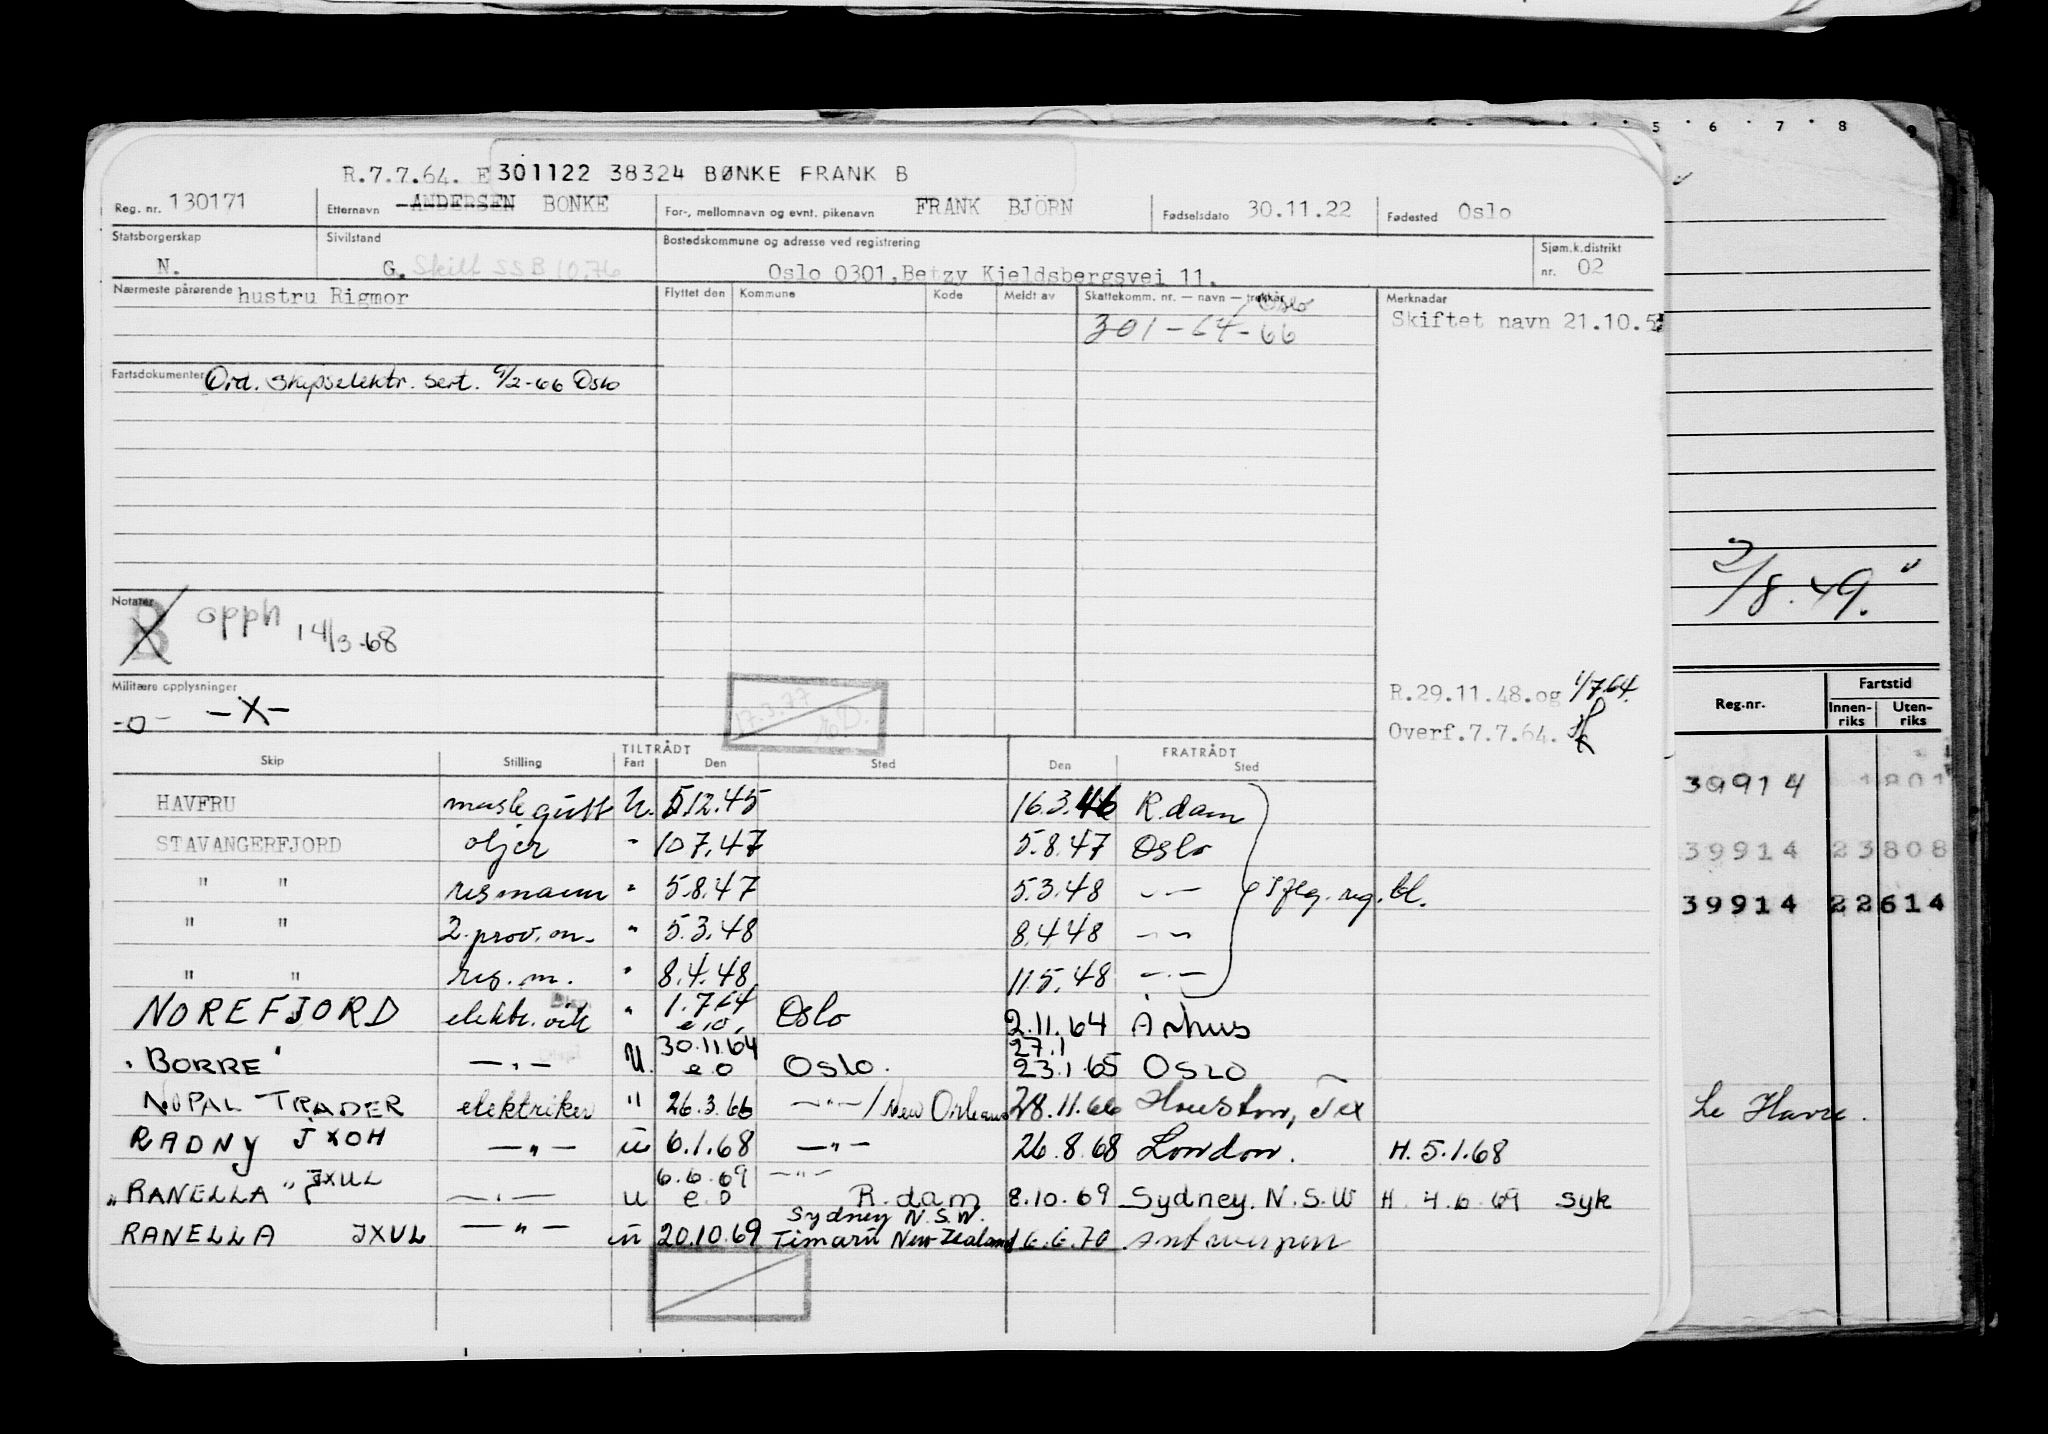 5 6 7 8 9
R.7.7.64. E 301122 38324 BØNKE FRANK B
Reg. nr. 130171 Etternavn ANDERSEN BONKE For-, mellomnavn og evnt. pikenavn FRANK BJÖRN Fødselsdato 30.11.22 Fødested Oslo
Statsborgerskap Sivilstand Bostedskommune og adresse ved registrering Sjøm.k.distrikt
N. G. Skilt SSB 10.76 Oslo 0301, Betzy Kjeldsbergsvei 11. nr. 02
Nærmeste pårørende hustru Rigmor Flyttet den Kommune Kode Meldt av Skattekomm. nr. — navn — trekkår Merknadar
Oslo
301-64-66 Skiftet navn 21.10.5
Fartsdokumenter Ord. skipselektr. sert. 9/2-66 Oslo
Notater
B opph 14/3-68
Militære opplysninger
-o- -X-
17.3.77
R.29.11.48.og 1/7.64.
Overf.7.7.64.
/8.49.
Reg.nr. Fartstid
Innen-riks Uten-riks
TILTRÅDT FRATRÅDT
Skip Stilling Fart Den Sted Den Sted
HAVFRU maskgutt U. 5.12.45 16.3.46 R.dam
STAVANGERFJORD oljer " 10.7.47 5.8.47 Oslo
" " resmann " 5.8.47 5.3.48 -"- reg. bl.
" " 2. prov. m. " 5.3.48 8.4.48 -"-
" " res. m. " 8.4.48 11.5.48 -"-
NOREFJORD elektr. " 1.7.64 e.o. Oslo 2.11.64 Århus
"BORRE" -"- U. 30.11.64 e.o Oslo. 27.1 23.1.65 OSLO
NOPAL TRADER elektriker " 26.3.66 -"-/New Orleans 28.11.66 Houston, Tex
RADNY JXOH -"- u 6.1.68 -"- 26.8.68 London. H. 5.1.68
"RANELLA" JXUL -"- u 6.6.69 e.o -"- R.dam 8.10.69 Sydney. N.S.W H 4.6.69 syk
RANELLA JXUL -"- u 20.10.69 Sydney N.S.W. Timaru New Zealand 16.6.70 Antwerpen
39914 1801
39914 23808
39914 22614
Le Havre.